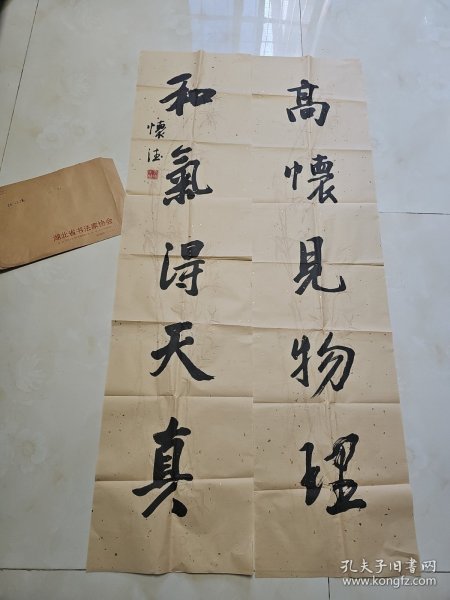 高懷見物理
和氣得天真
懷德
湖北省书法家协会
孔夫子旧书网
www.kongfz.com